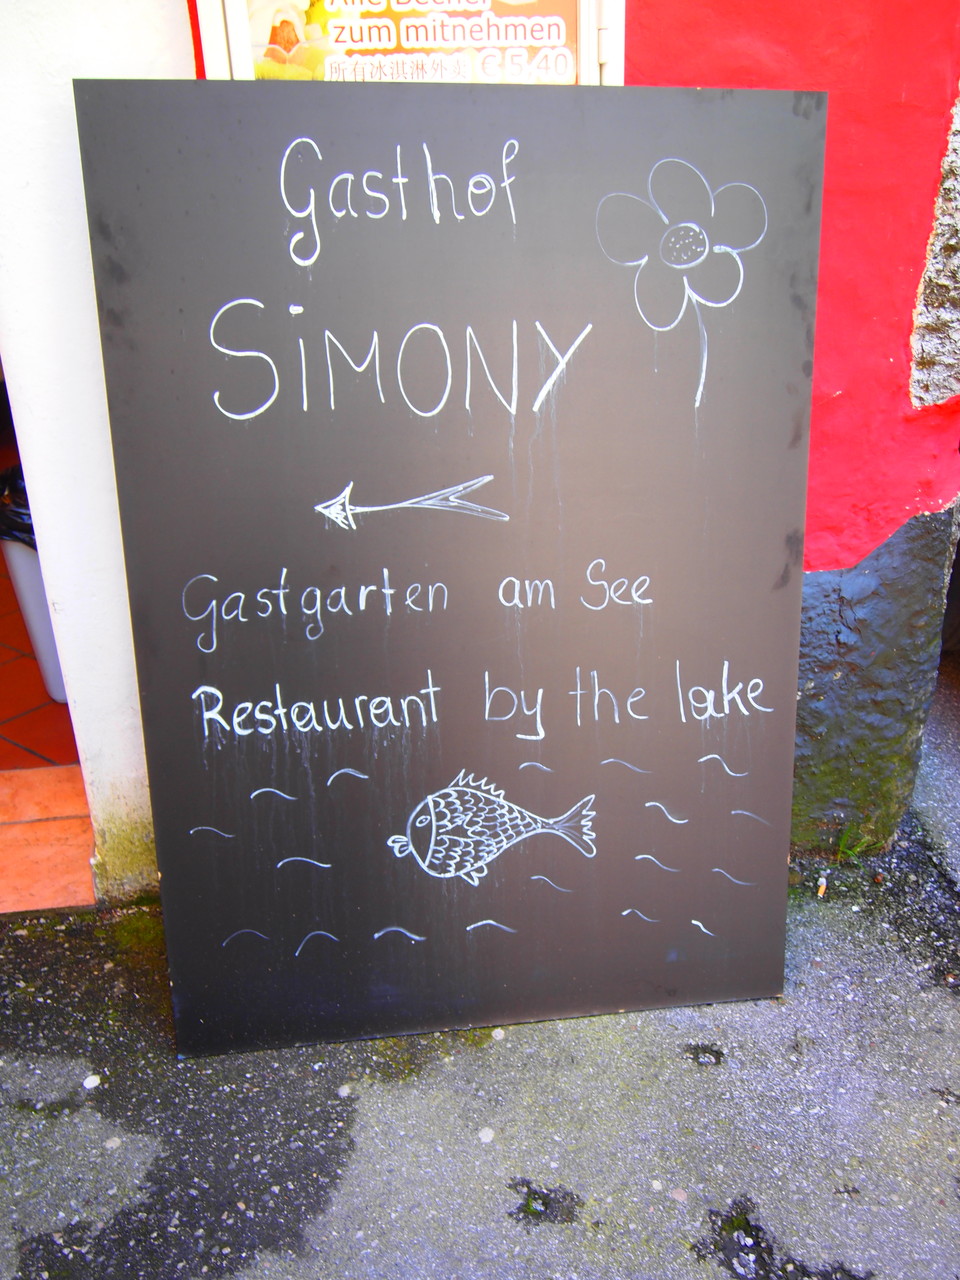 Alle Becher
zum mitnehmen
所有冰淇淋外卖 € 5,40
Gasthof
SiMONY
Gastgarten am See
Restaurant by the lake